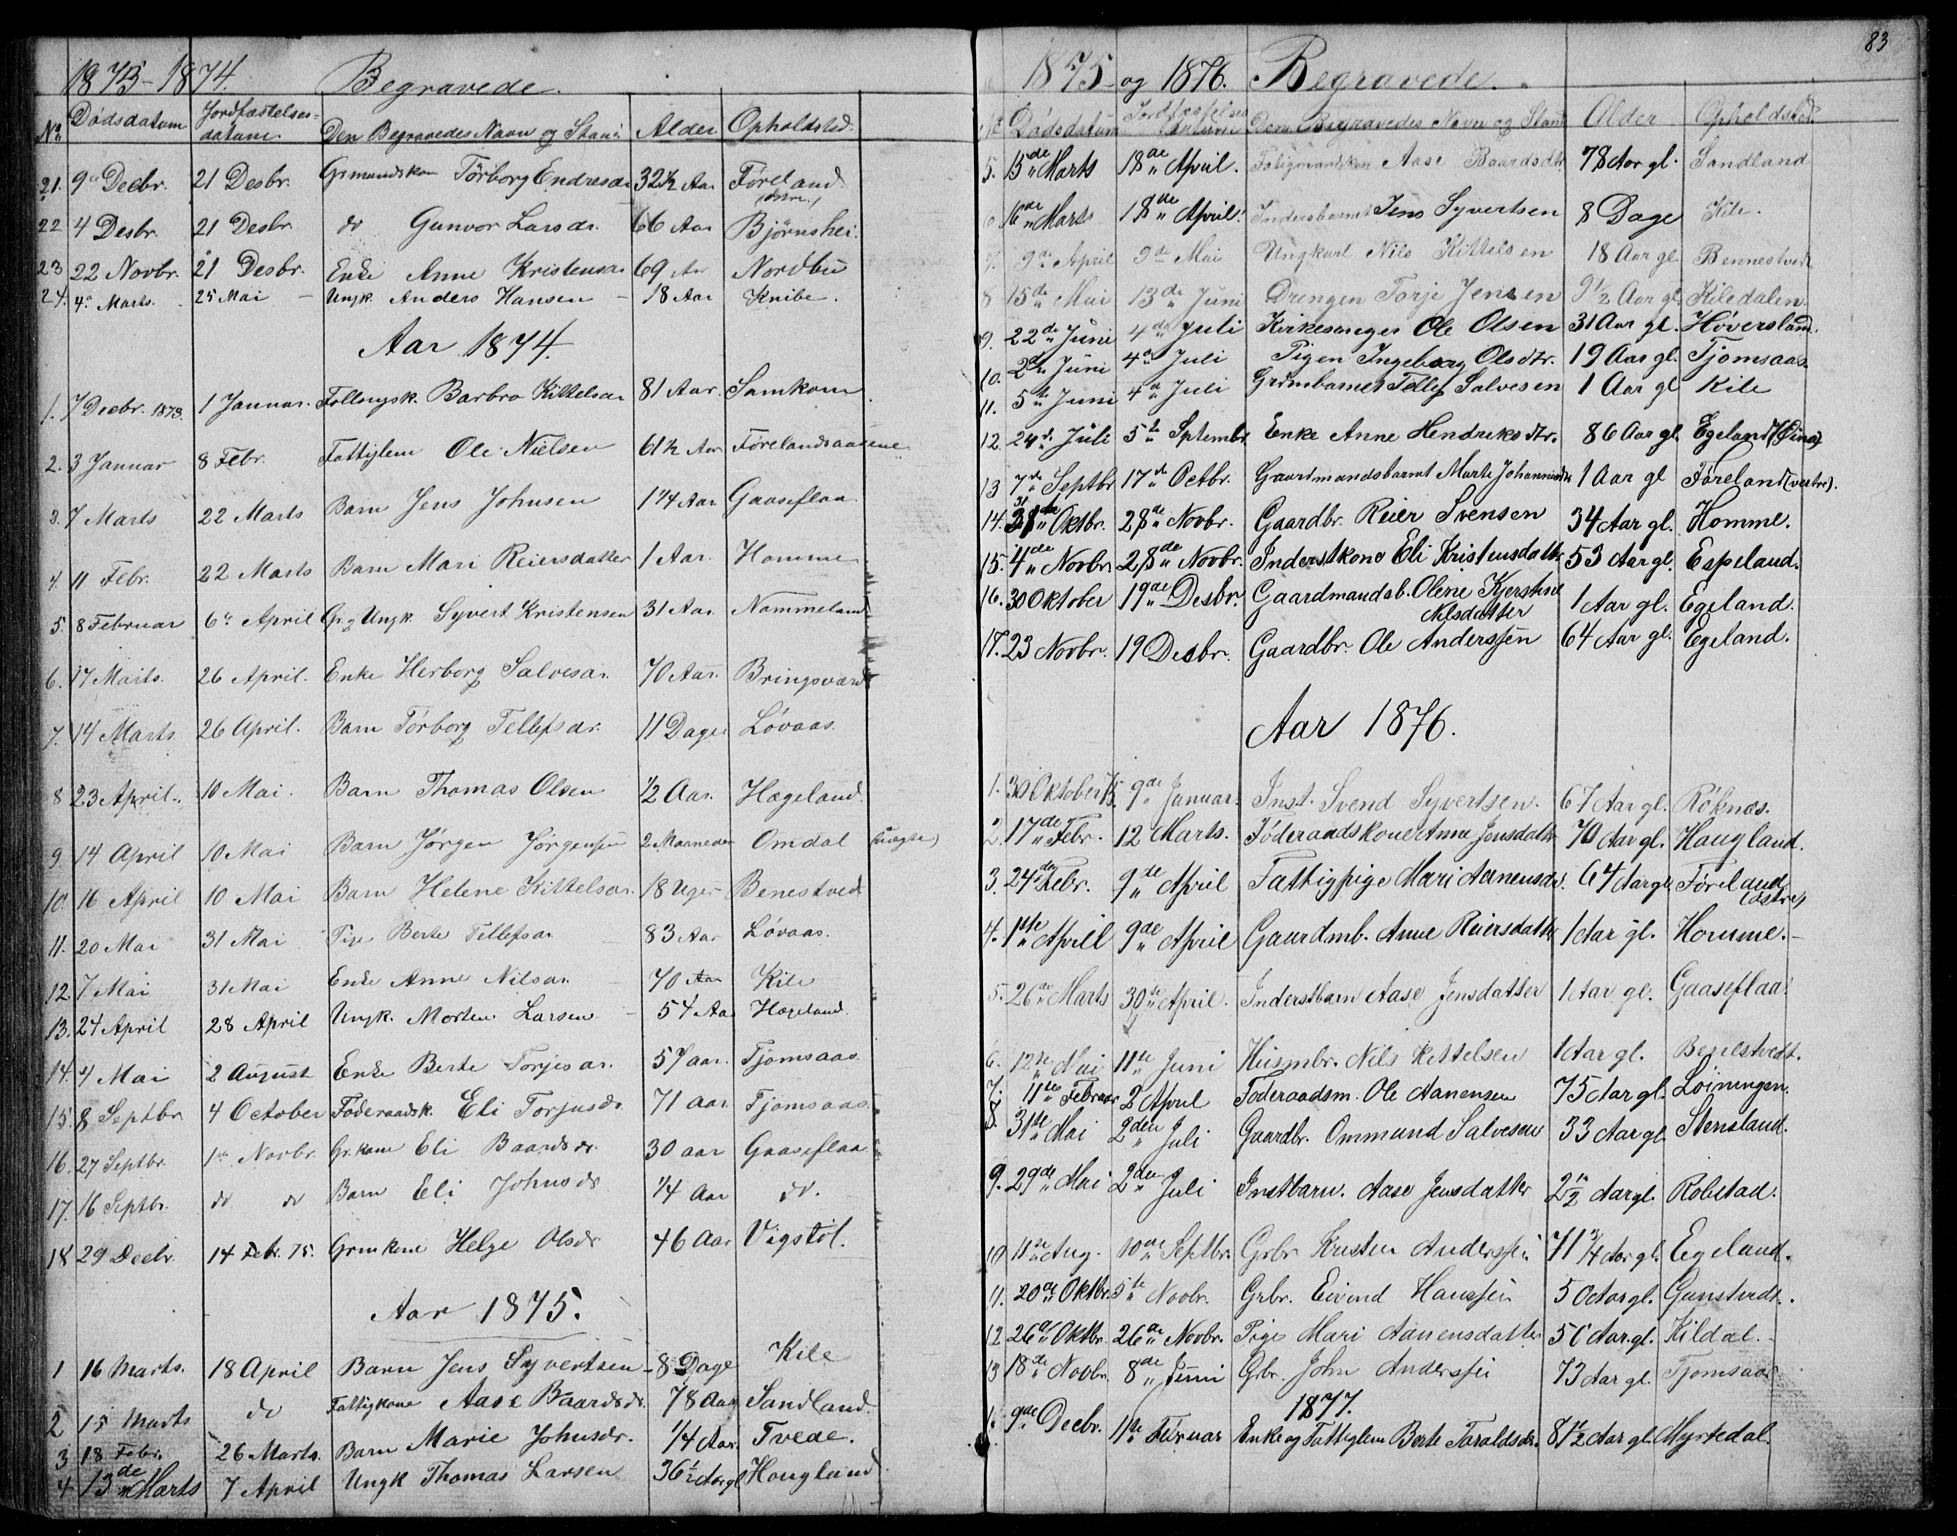 1873-1874. Begravede.
No Dødsdatum Jordfæstelses-datum. Den Begravedes Navn og Stand Alder Opholdsted
21. 9 Decbr. 21 Desbr. Grmandskon Tørborg Endresdr 32½ Aar Føreland
22 4 Desbr. 21 Desbr. do Gunvor Larsdr. 66 Aar Bjørnshei.
23 22 Novbr. 21 Desbr. Enke Anne Kristensdr 69 Aar Nordbü
24. 4 Marts. 25 Mai Ungk. Anders Hansen 18 Aar Knibe.
Aar 1874.
1. 7 Decbr. 1873. 1 Januar. Barbro Kittelsdr 81 Aar. Samkom
2. 3 Januar 8 Febr. Fattiglem Ole Nielsen 61½ Aar Førelandsaasene
3. 7 Marts 22 Marts Barn Jens Johnsen 1¼ Aar Gaaseflaa
4. 11 Febr. 22 Marts Barn Mari Reiersdatter 1 Aar. Homme
5. 8 Februar 6 April Ungk. Syvert Kristensen 31 Aar. Nommeland
6. 17 Marts. 26 April. Enke Herborg Salvesdr. 70 Aar. Bringsværd
7. 14 Marts. 26 April. Barn Tørborg Tellefsdr. 11 Dage Løvaas.
8 23 April. 10 Mai. Barn Thomas Olsen ½ Aar. Hægeland
9 14 April 10 Mai Barn Jørgen Jørgensen 2 Maaneder Omdal
10. 16 April 10 Mai Barn Helene Kittelsdr. 18 Uger Benestved
11. 20 Mai 31 Mai Berte Tellefsdr 83 Aar Løvaas.
12. 7 Mai 31 Mai Enke Anne Nilsdr. 70 Aar Kile
13. 24 April 28 April Ungk. Morten Larsen 54 Aar Hægeland.
14. 4 Mai 2 August Enke Berte Torjesdr. 57 aar. Tjomsaas
15. 8 Septbr 4 October Føderaadsk. Eli Torjusdr 71 aar Tjomsaas.
16. 27 Septbr. 1 Novbr. Gr. kone Eli Baardsdr. 30 aar Gaaseflaa
17. 16 Septbr. do do Barn Eli Johnsdr ¼ Aar do.
18 29 Decbr. 14 Febr. 75. Grmkone Helge Olsdr 46 Aar Vigstøl.
Aar 1875.
1 16 Marts. 18 April Barn Jens Syvertsen 8 Dage Kile
2 15 Marts do Fattigkone Aase Baardsdr. 78 Aar Sandland.
3 18 Febr. 26 Marts. Barn Marie Johnsdr. ¼ Aar. Tvede.
4 13de Marts 7 April Ungk Thomas Larsen 36½ Aar gl Hougland
83
1875 og 1876. Begravede.
No Dødsdatum Jordfæstelsesdatum Den Begravedes Navn og Stand Alder Opholdsted
5. 15de Marts 18de April. Aase Baardsdtr 78 Aar gl. Sandland
6 16de Marts 18de April. Inderstbarnet Jens Syvertsen 8 Dage Kile.
7. 9de April 9de Mai Ungkarl Nils Kittelsen 18 Aar gl. Bennestvedt
8 15de Mai 13de Juni Drengen Torje Jensen 9½ Aar gl. Kiledalen.
9. 22de Juni 4de Juli Kirkesanger Ole Olsen 31 Aar gl. Høversland.
10. 2de Juni 4de Juli Pigen Ingeborg Olsdtr. 19 Aar gl. Tjomsaas.
11. 5te Juni 4de Juli Grmbarnet Tellef Salvesen 1 Aar gl Kile
12. 24de Juli 5te Septembr Enke Anne Hendriksdtr. 86 Aar gl. Egeland
13 7de Septbr 17de Octbr. Gaardmandsbarnet Marte Johannesdtr 1 Aar gl Føreland (vestre).
14. 31 Oktbr. 28de Novbr. Gaardbr. Reier Svensen 34 Aar gl. Homme.
15. 4de Novbr 28de Novbr. Inderstkone Eli Kristensdatter 53 Aar gl. Espeland.
16. 30 Oktober 19de Desbr. Gaardmandsb. Olene Kjerstine Nilsdatter 1 Aar gl. Egeland.
17. 23 Novbr. 19 Desbr. Gaardbr. Ole Anderssen 64 Aar gl. Egeland.
Aar 1876.
1. 30 Oktober 75. 9de Januar. Inst. Svend Syvertsen. 67 Aar gl. Røknæs.
2 17de Febr. 12 Marts. Føderaadskone Anne Jensdatter 70 Aar gl. Haugland.
3. 24de Febr. 9de April Fattigpige Mari Aanensdr. 64 Aar gl Føreland (østre)
4. 1ste April 9de April Gaardmb. Anne Reiersdatter 1 Aar gl. Homme.
5. 26de Marts 30te April. Inderstbarn Aase Jensdatter 1 Aar gl. Gaaseflaa.
6. 12te Mai 11te Juni Husmbr. Nils Kittelsen 1 Aar gl. Benestvedt.
7. 11te Februar 2 April Føderaadsm. Ole Aanensen 75 Aar gl. Løiningen.
8. 31te Mai 2den Juli Gaardbr. Ommund Salvesen 33 Aar gl. Stensland.
9. 29de Mai 2den Juli Instbarn. Aase Jensdatter 2½ Aar gl. Robstad.
10 11te Aug. 10de Septbr. Grbr. Kristen Anderssen 71¾ Aar gl. Egeland.
11. 20de Oktbr. 5te Novbr. Grbr. Eivind Hanssen 50 Aar gl. Gunstvedt.
12 26de Oktbr. 26de Novbr. Pige Mari Aanensdatter 56 Aar. gl. Kildal.
13 18de Novbr. 8de Juni Gbr. John Anderssen 73 Aar gl. Tjomsaas
1877.
1. 9de Decbr. 11te Februar Enke og Fattiglem Berte Taraldsdr. 81½ Aar gl. Myrtedal.